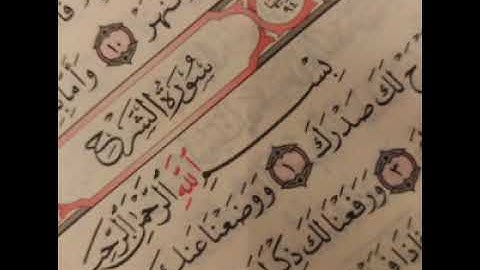 نهر ١٠ وَأَمَّا
٩٤
سُورَةُ الشَّرْحِ
بِسْمِ ٱللَّهِ ٱلرَّحْمَٰنِ ٱلرَّحِيمِ
لَكَ صَدْرَكَ ١ وَوَضَعْنَا عَنكَ
٣ وَرَفَعْنَا لَكَ